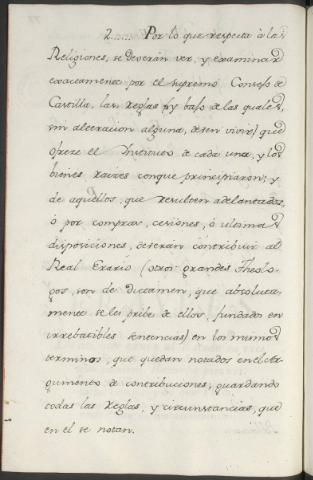 2...... Por lo que respecta à las
Religiones, se deverán ver, y examinar
exactamente por el supremo Consejo de
Castilla, las reglas (y bajo de las quales,
sin alteracion alguna, deven vivir) que
ofrece el Instituto de cada una, y los
bienes raizes conque principiaron; y
de aquellos, que resulten adelantados,
ó por compras, cesiones, ó ultimas
disposiciones, deverán contribuir al
Real Erario (otros grandes Theolo-
gos, son de dictamen, que absoluta-
mente se les prive de ellos, fundados en
irrebatibles sentencias) en los mismos
terminos, que quedan notados en el Ar-
gumento de contribuciones, guardando
todas las reglas, y circunstancias, que
en el se notan.